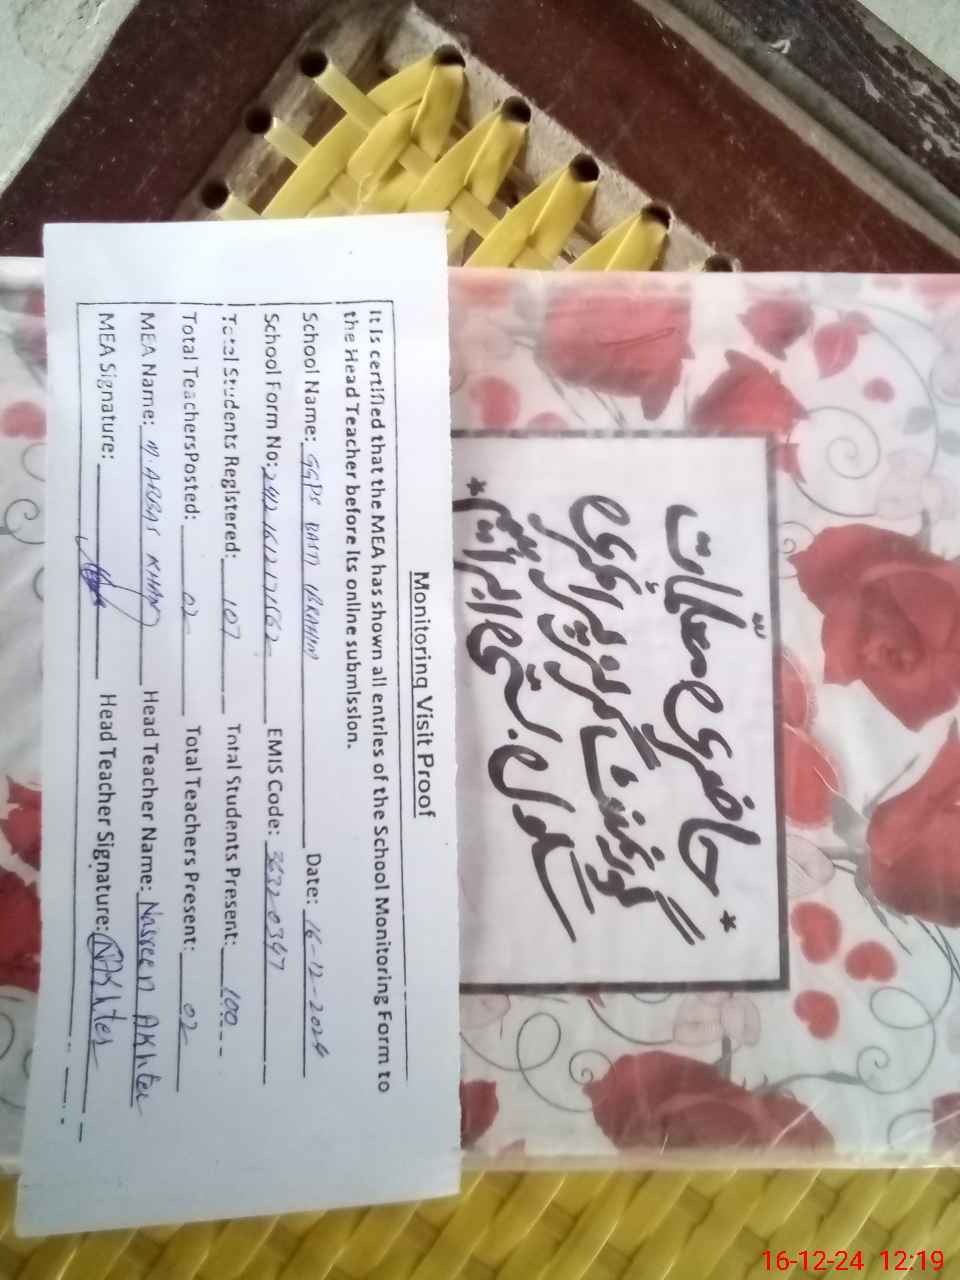 Monitoring Visit Proof
It is certified that the MEA has shown all entries of the School Monitoring Form to
the Head Teacher before its online submission.
School Name: GGPS BASTI IBRAHIM Date: 16-12-2024
School Form No: EMIS Code: 36320347
Total Students Registered: 107 Total Students Present: 100
Total Teachers Posted: 02 Total Teachers Present: 02
MEA Name: M. ARBAS KHAN Head Teacher Name: Nasreen Akhter
MEA Signature: Head Teacher Signature: NAKhter
* حاضری معلمات
گورنمنٹ گرلز پرائمری
سکول بستی ابراہیم *
16-12-24 12:19